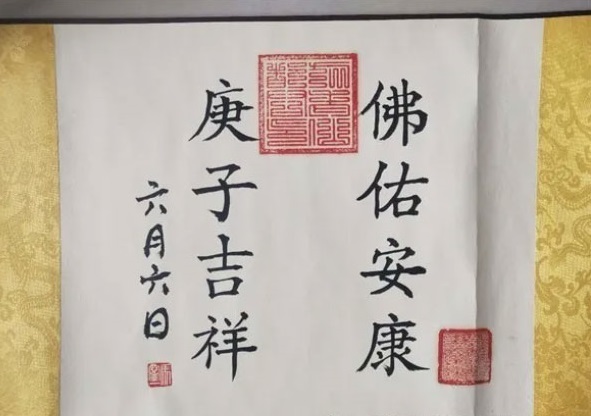 佛佑安康
庚子吉祥
六月六日